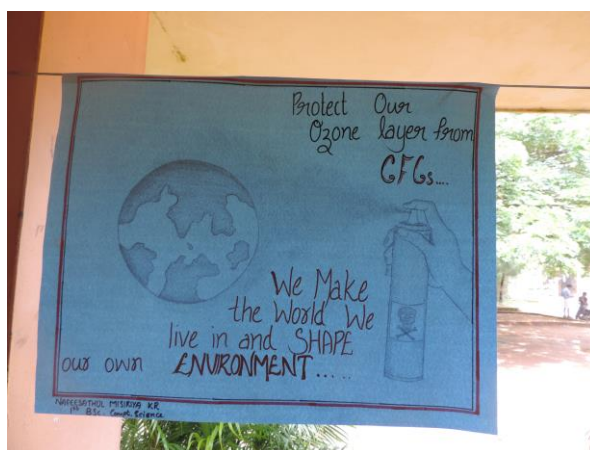 Protect Our
Ozone layer from
CFCs....
We Make
the World We
live in and SHAPE
our own ENVIRONMENT......
NAFEESATHUL MISIRIYA KR
1st BSc. Comp. Science